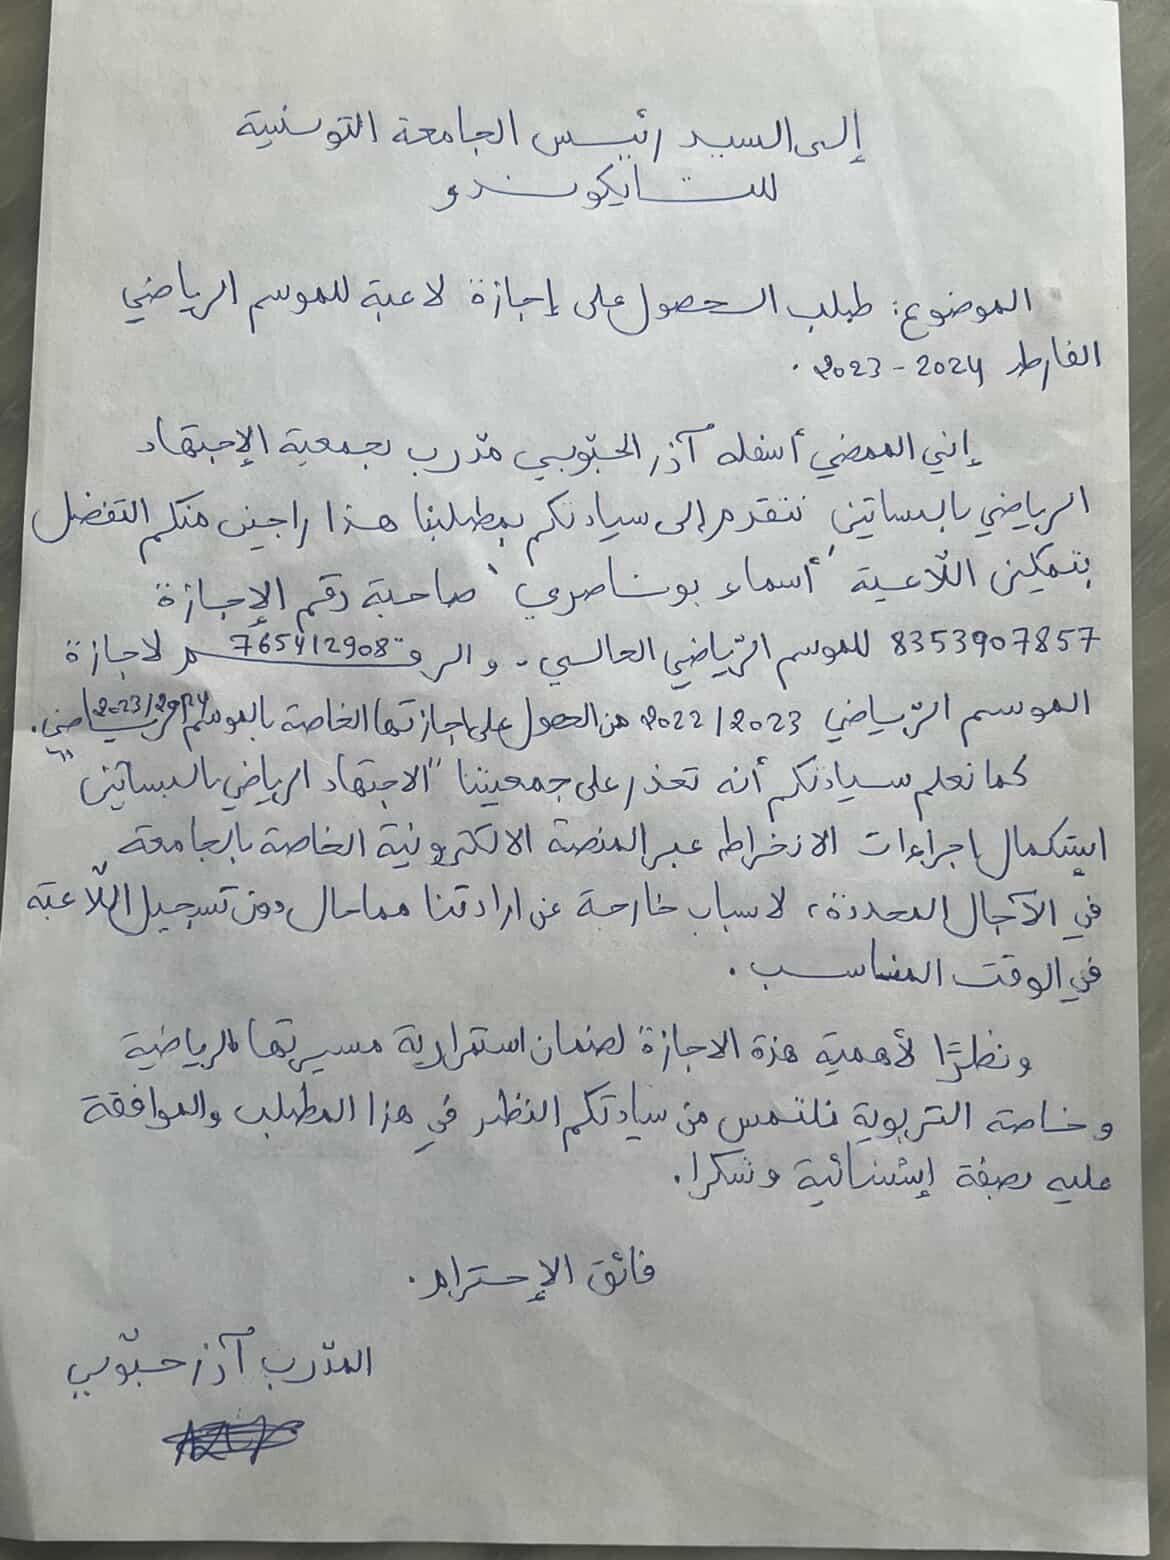 إلى السيد رئيس الجامعة التونسية
للتايكوندو
الموضوع: طلب الحصول على إجازة لاعبة للموسم الرياضي
الفارط 2024 - 2023.
إني الممضي أسفله آذر الحبّوبي مدّرب بجمعية الإجتهاد
الرياضي بالبساتين نتقدم إلى سيادتكم بمطلبنا هذا راجين منكم التفضل
بتمكين اللّاعبة "أسماء بوناصري" صاحبة رقم الإجازة
8353907857 للموسم الرّياضي الحالي. والرقم 765412908 لاجازة
الموسم الرّياضي 2022/2023 من الحصول على اجازتها الخاصة بالموسم الرياضي 2023/2024.
كما نعلم سيادتكم أنه تعذر على جمعيتنا "الاجتهاد الرياضي بالبساتين"
إستكمال إجراءات الانخراط عبر المنصة الالكترونية الخاصة بالجامعة
في الآجال المحددة، لاسباب خارجة عن ارادتنا مما حال دون تسجيل اللّاعبة
في الوقت المناسب.
ونظرًا لأهمية هذة الاجازة لضمان استمرارية مسيرتها الرياضية
وخاصة التربوية نلتمس من سيادتكم النظر في هذا المطلب والموافقة
عليه بصفة إستثنائية وشكرا.
فائق الإحترام.
المدّرب آذر حبّوبي